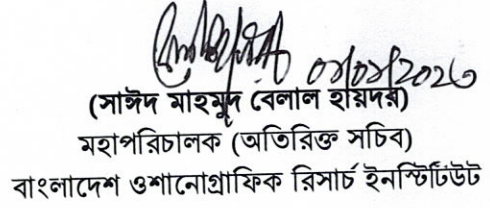 (সাঈদ মাহমুদ বেলাল হায়দর)
মহাপরিচালক (অতিরিক্ত সচিব)
বাংলাদেশ ওশানোগ্রাফিক রিসার্চ ইনস্টিটিউট